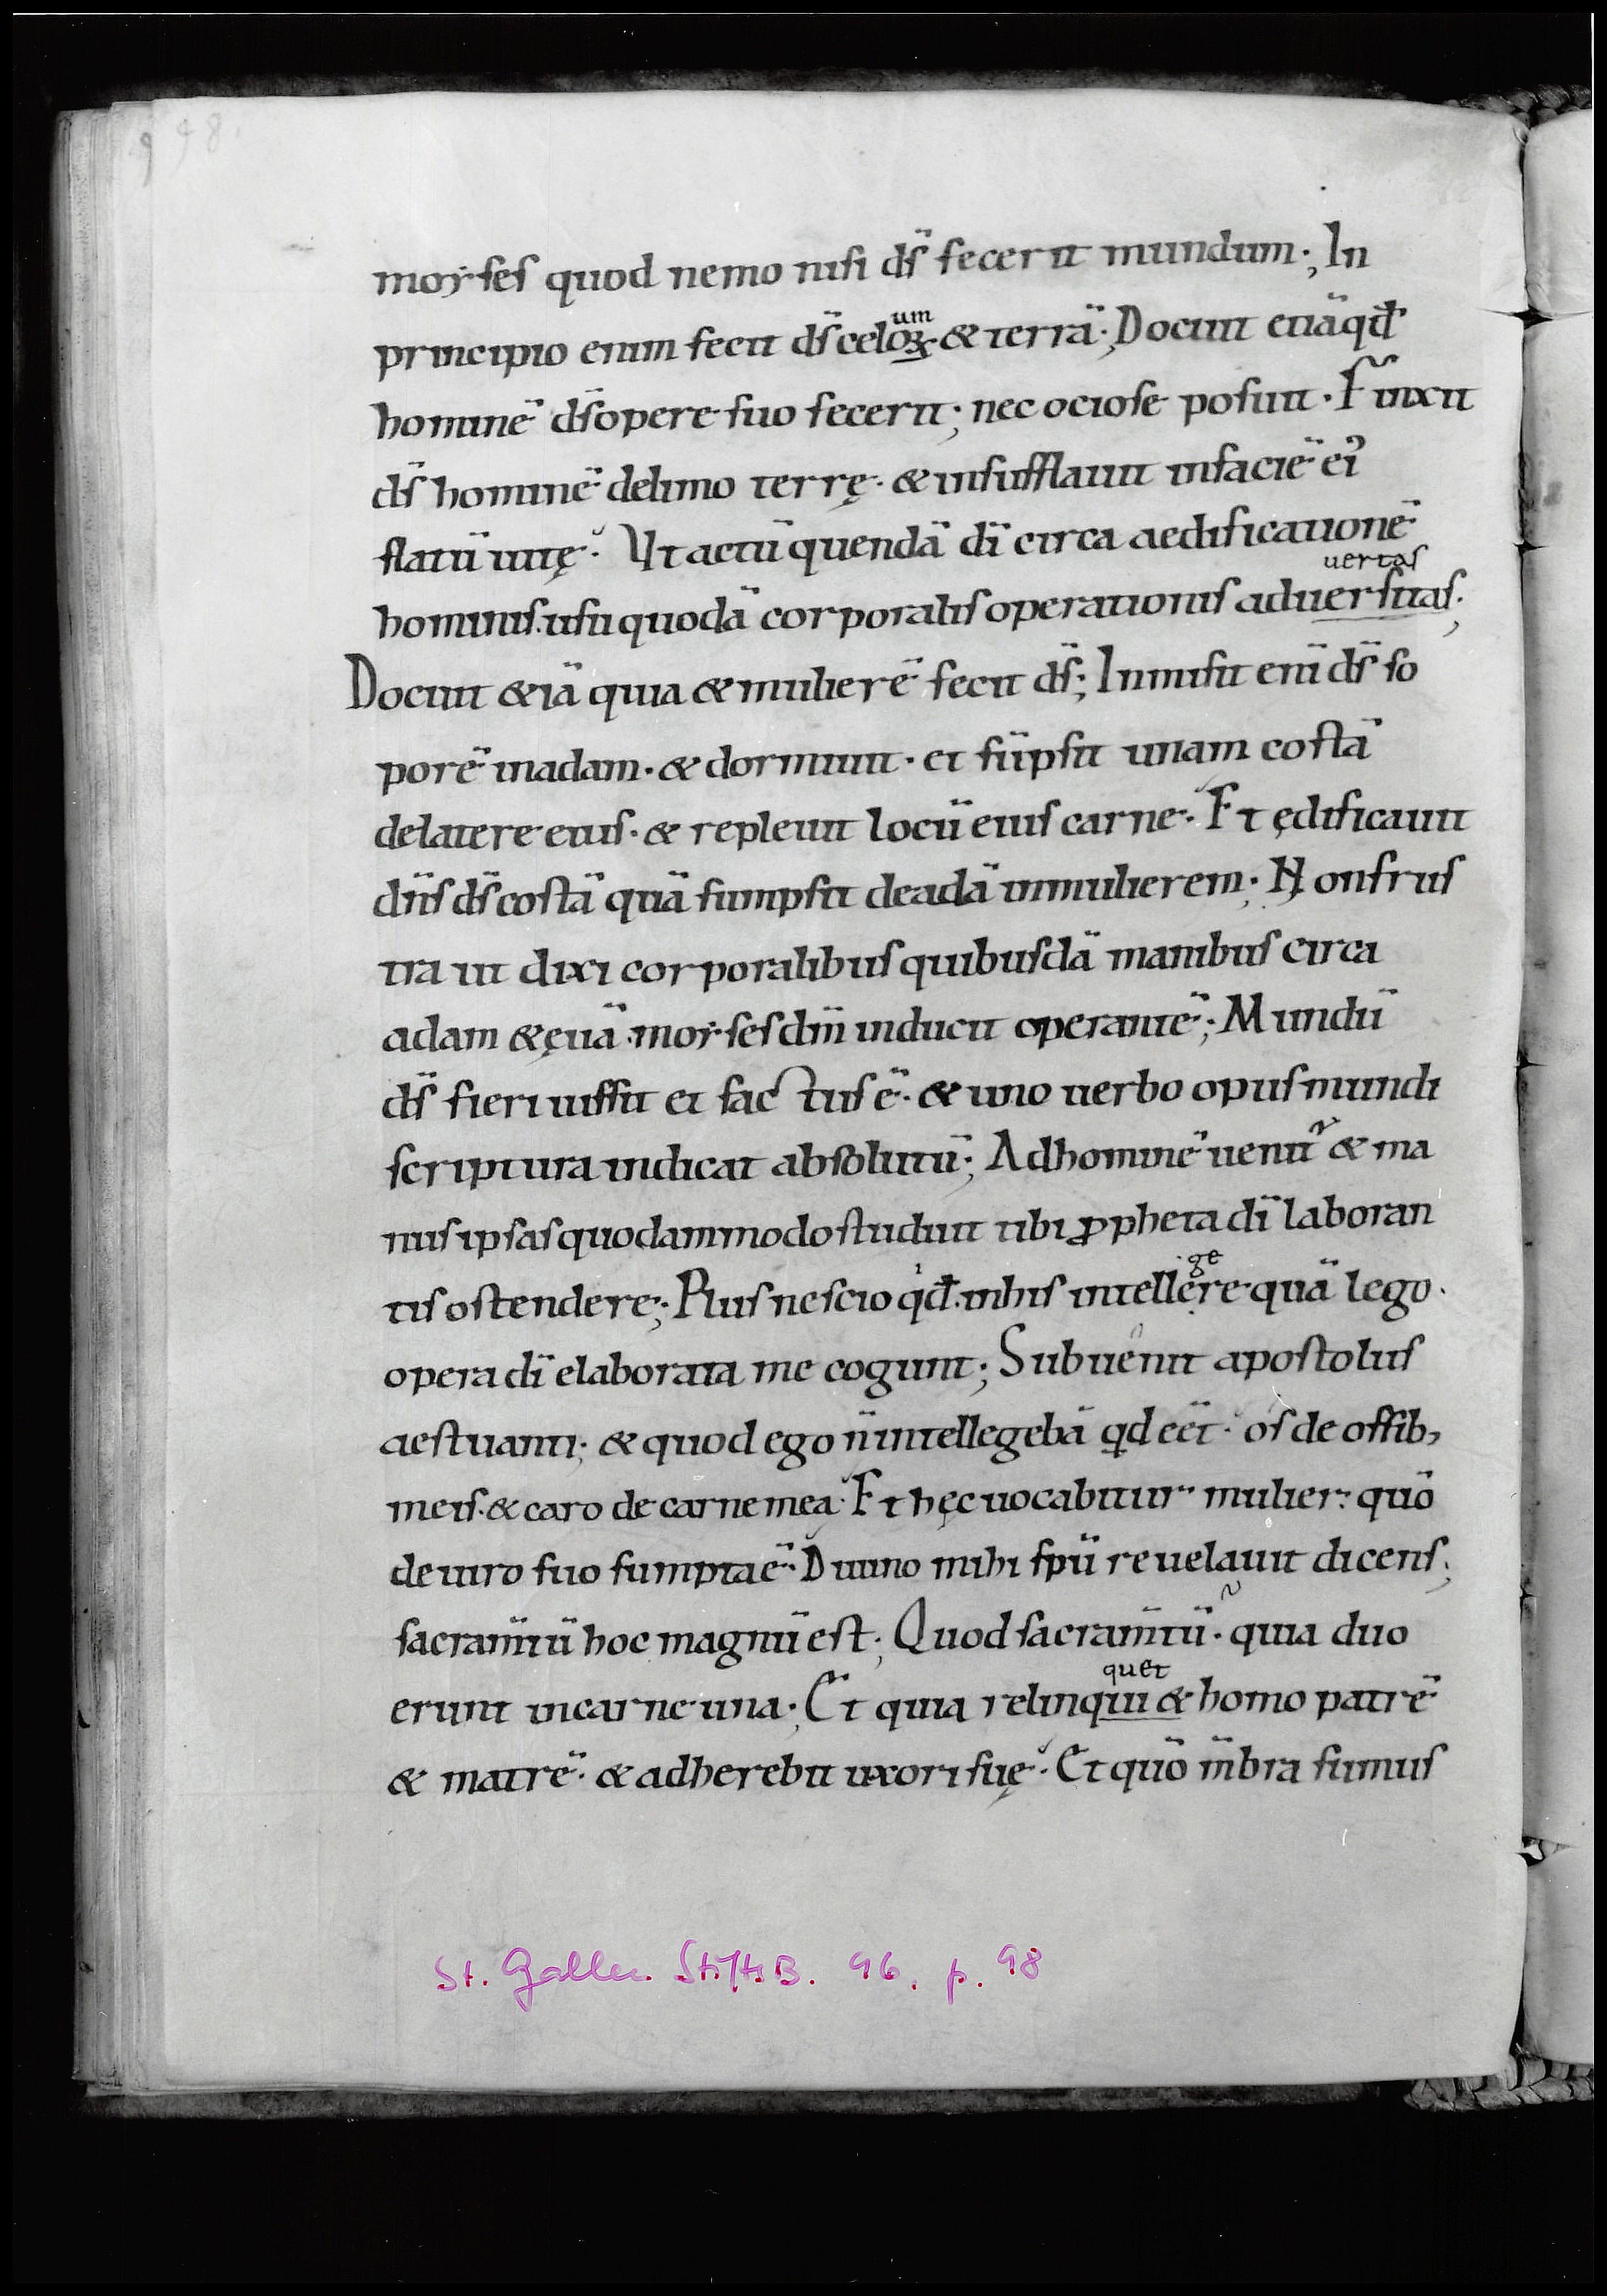 98.
moẏses quod nemo nisi d̄s fecerit mundum; In
um
principio enim fecit d̄s celoꝝ & terrā; Docuit etiā qđ
hominē d̄s opere suo fecerit; nec ociose posuit. Finxit
d̄s hominē de limo terrę. & insufflauit in faciē ei᾿
flatū uitę. Vt actū quendā dī circa aedificationē
uertas
hominis. usu quodā corporalis operationis aduersitas;
Docuit & iā quia & mulierē fecit d̄s; Inmisit eni d̄s so
porē in adam. & dormiuit. et sūpsit unam costā
de latere eius. & repleuit locū eius carne. Et ędificauit
dn̄s d̄s costā quā sumpsit de adā in mulierem; Non frus
tra ut dixi corporalibus quibusdā manibus circa
adam & ęuā. moẏses dm̄ inducit operantē; Mundū
d̄s fieri iussit et factus ē. & uno uerbo opus mundi
scriptura indicat absolutū; Ad hominē uenit᷑ & ma
nus ipsas quodammodo studuit tibi ꝓpheta dī laboran
ge
tis ostendere; Plus nescio qđ. in his intellere quā lego.
opera dī elaborata me cogunt; Subuenit apostolus
aestuanti; & quod ego n̄ intellegebā qd eēt. os de ossib,
meis. & caro de carne mea. Et hęc uocabitur mulier. quō
de uiro suo sumpta ē. Diuino mihi sp̄u reuelauit dicens;
sacram̄tū hoc magnū est; Quod sacram̄tū. quia duo
quet
erunt in carne una; Et quia relinqui& homo patrē
& matrē. & adherebit uxori suę. Et quō m̄bra sumus
St. Gallen StiftsB. 96. p. 98